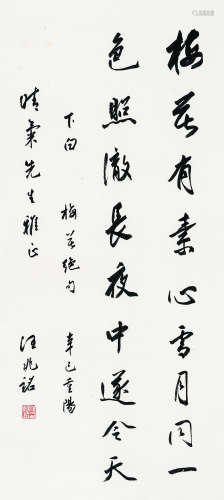 梅花有素心雪月同一
色照徹長夜中遂令天
下白 梅花絕句 辛巳重陽
晴氣先生雅正 汪兆銘